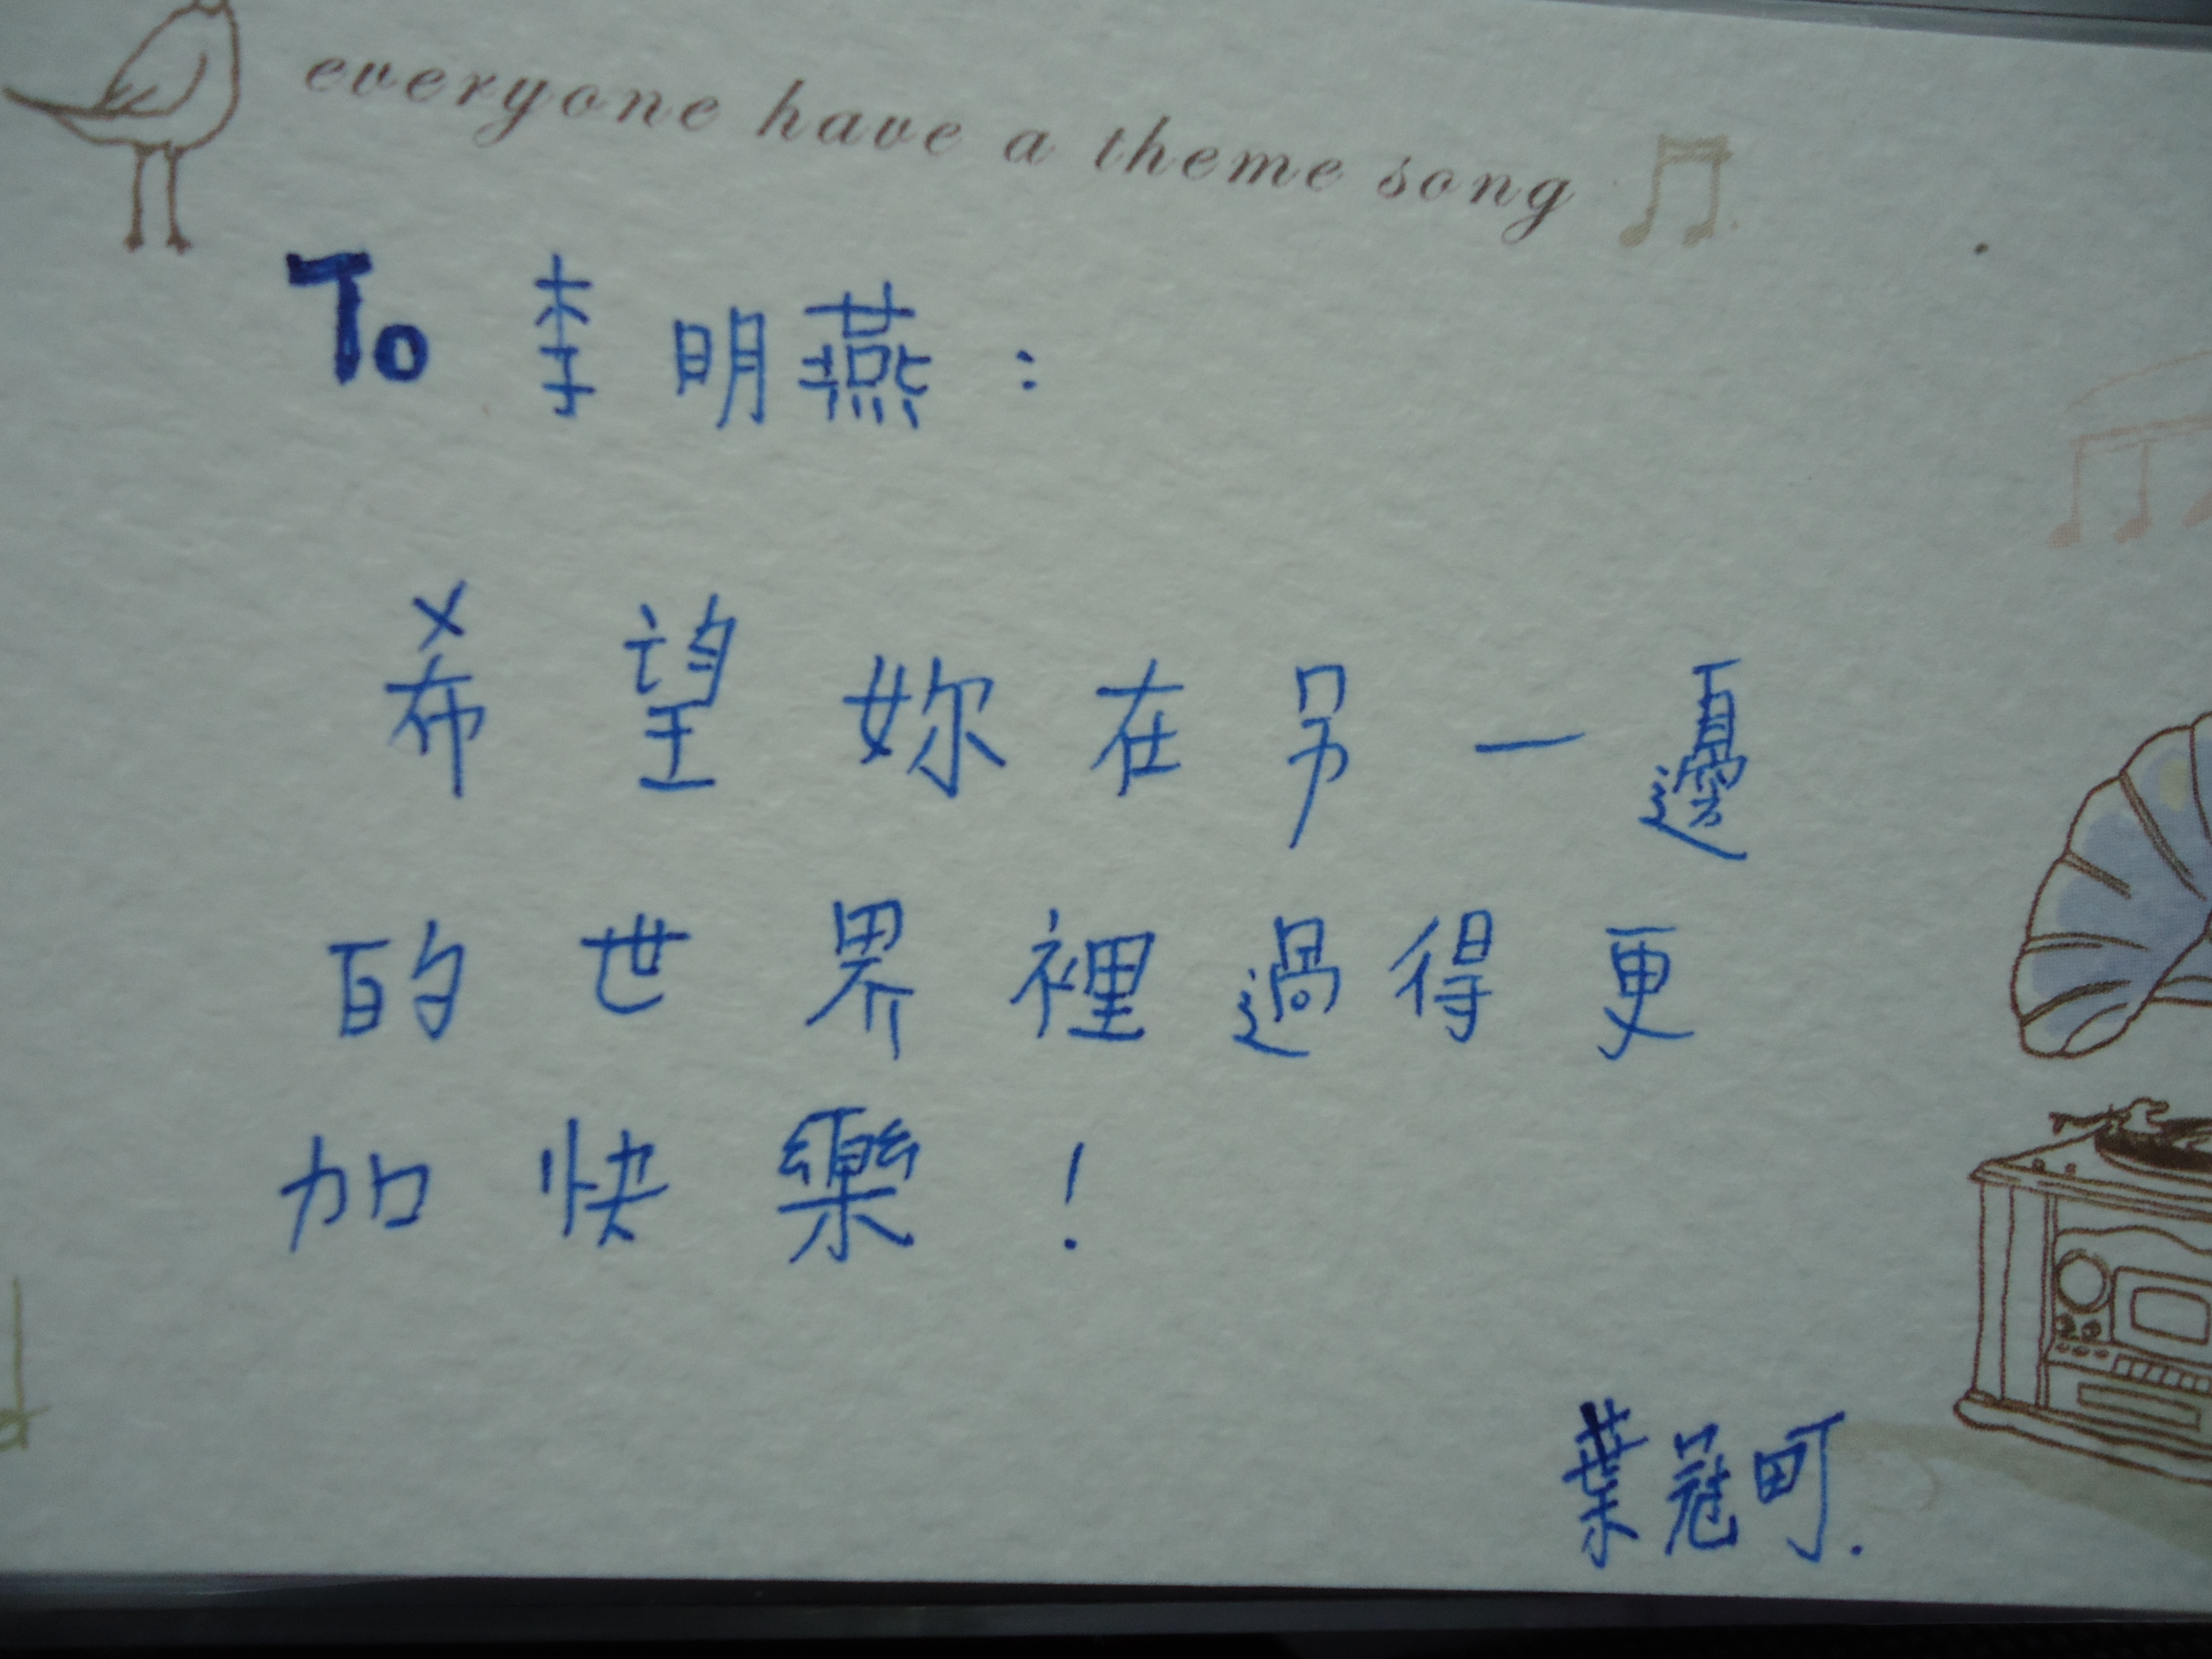 everyone have a theme song
To 李明燕：
希望妳在另一邊
的世界裡過得更
加快樂！
葉冠町.